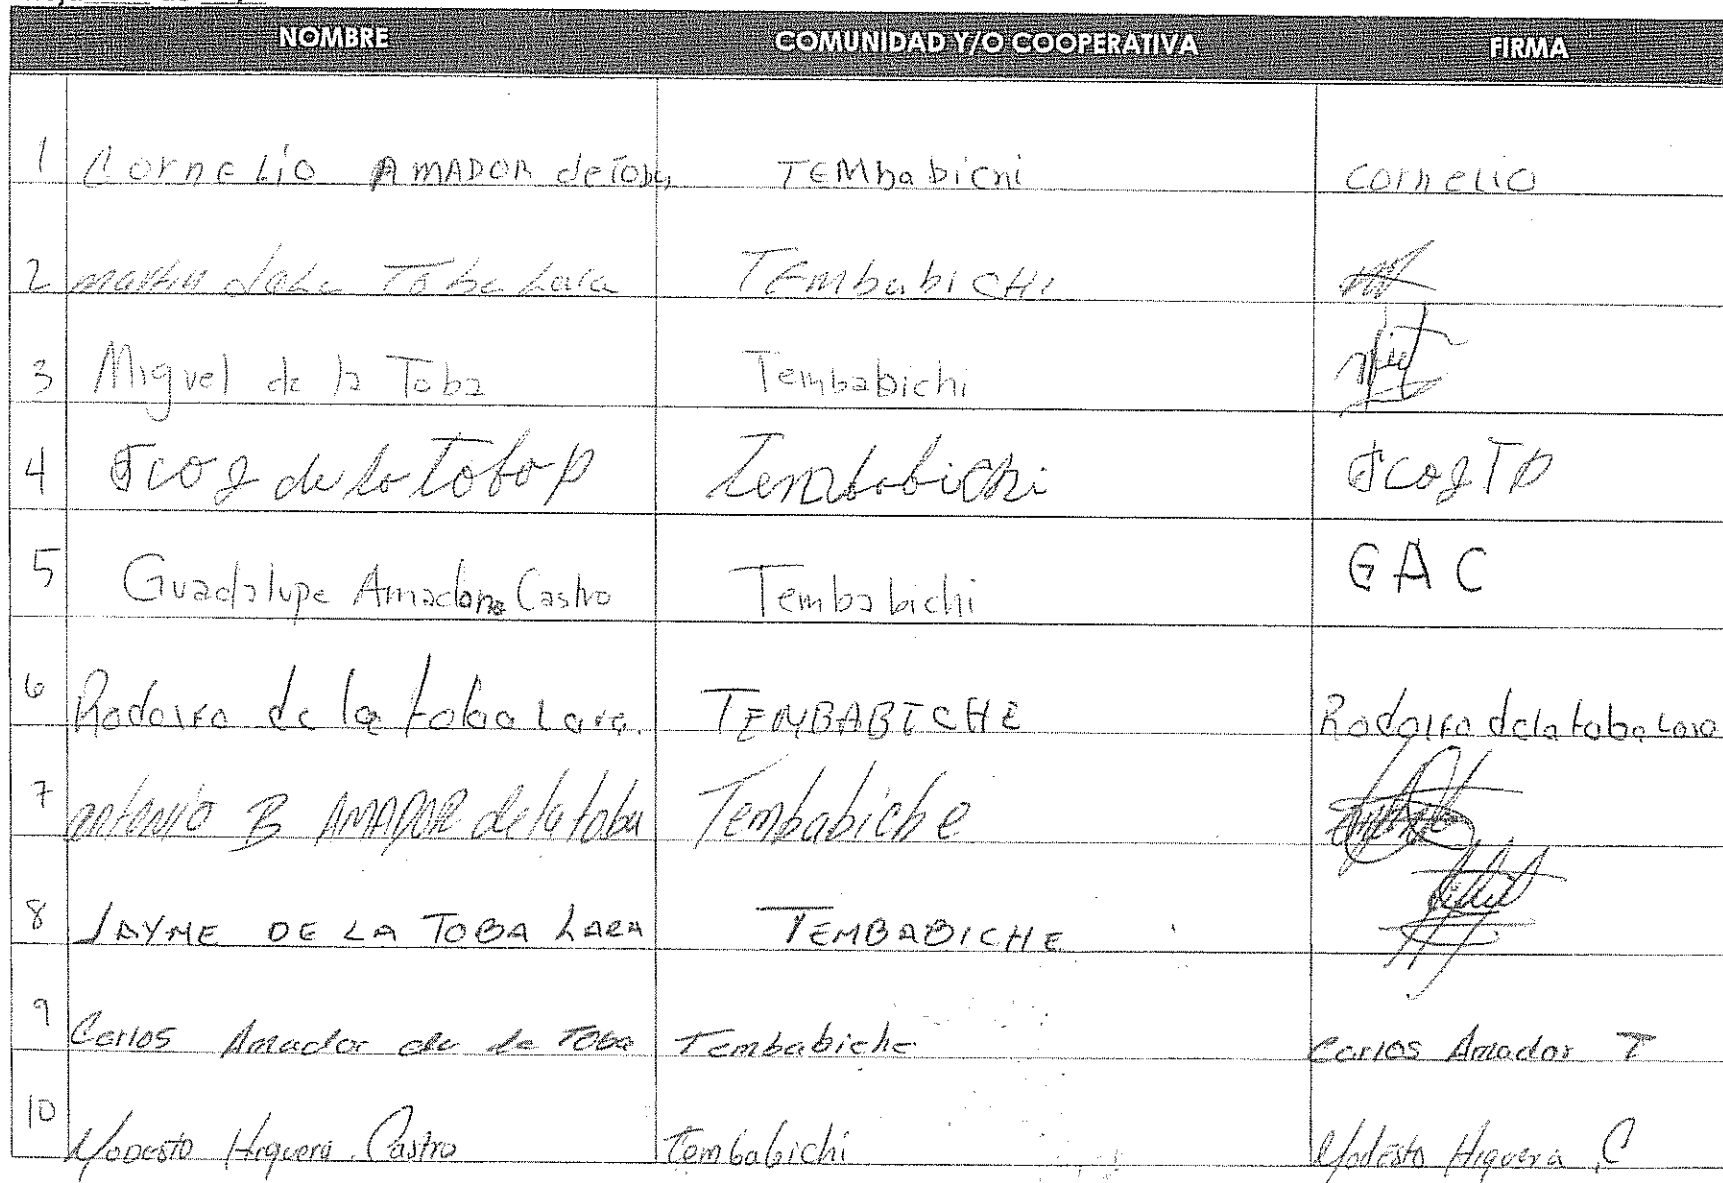 NOMBRE COMUNIDAD Y/O COOPERATIVA FIRMA
1 Cornelio AMADOR de Toba TEMbabichi cornelio
2 martin dela Toba Lara TEmbabiCHi
3 Miguel de la Toba Tembabichi
4 Fco J de la Toba P Tembabichi Fco J T P
5 Guadalupe Amador Castro Tembabichi G A C
6 Rodolfo de la toba Lara. TEMBABICHE Rodolfo de la toba Lara
7 antonio B AMADOR de la toba Tembabiche
8 JAYME DE LA TOBA LARA TEMBABICHE
9 Carlos Amador de la Toba Tembabiche Carlos Amador T
10 Modesto Higuera Castro Tembabichi Modesto Higuera C